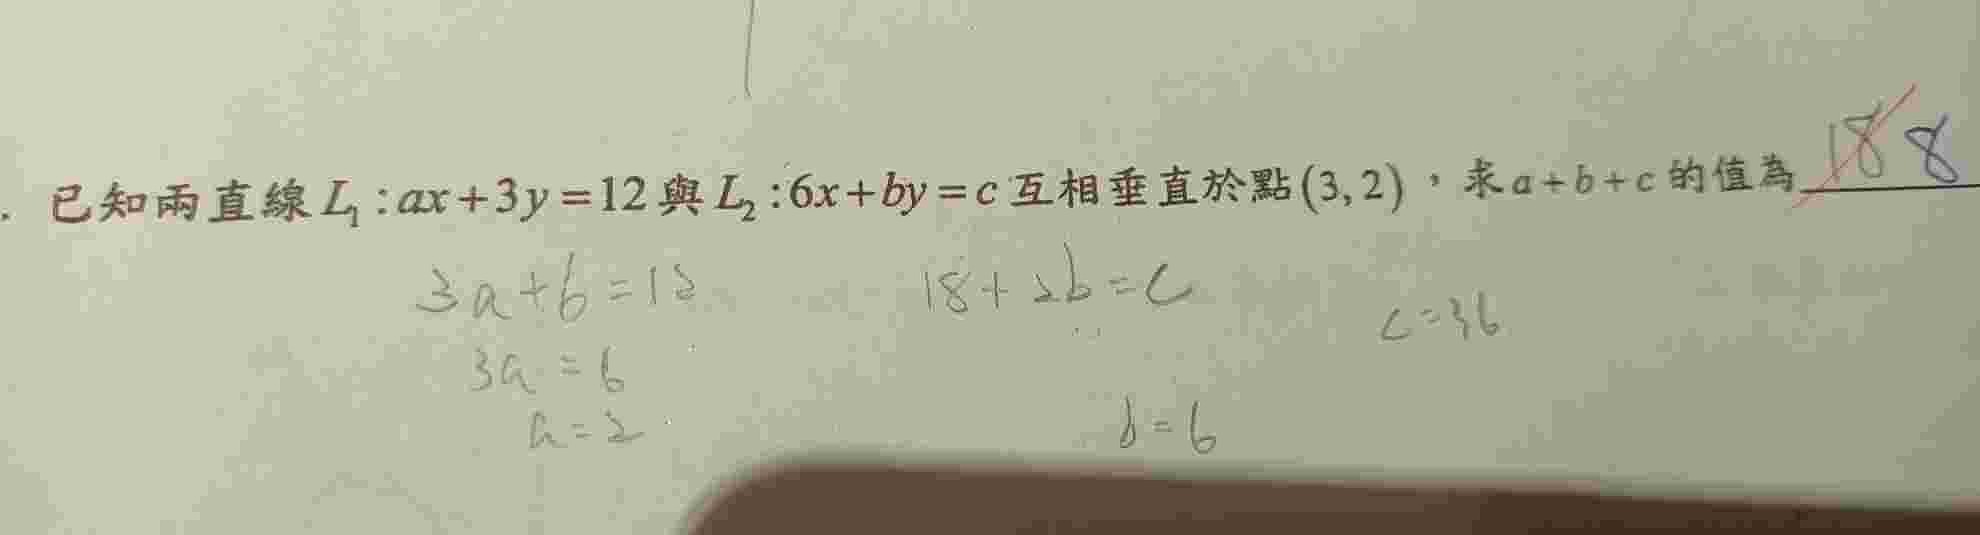 . 已知兩直線 L₁:ax+3y=12 與 L₂:6x+by=c 互相垂直於點(3,2)，求a+b+c的值為 18 8
3a+6=12 18+2b=c
c=36
3a=6
a=2 b=6